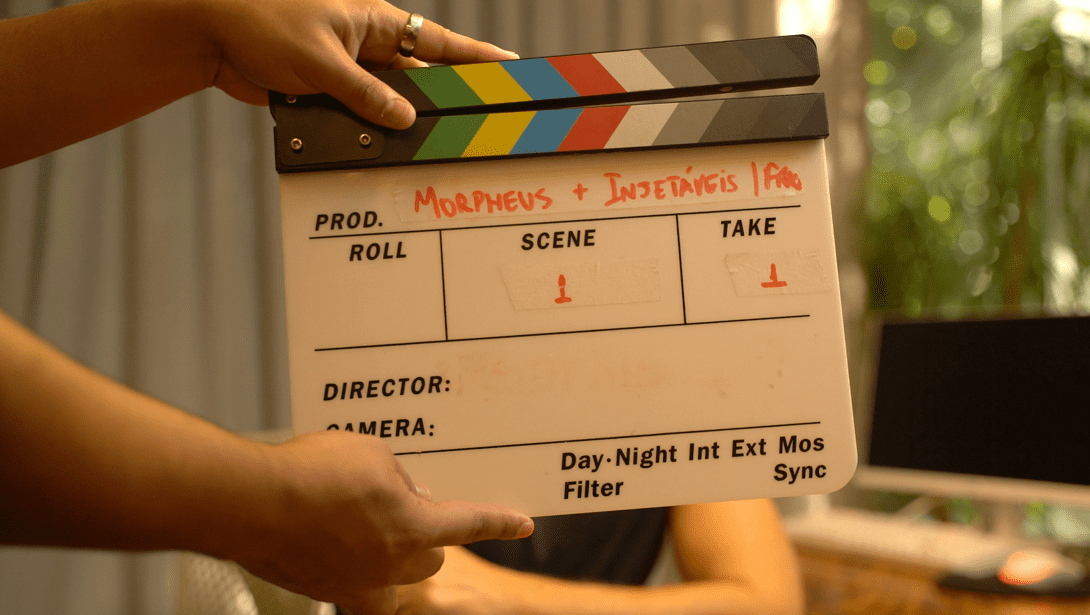 MORPHEUS + INJETÁVEIS |
PROD.
ROLL SCENE TAKE
1 1
DIRECTOR:
CAMERA:
Day·Night Int Ext Mos
Filter Sync